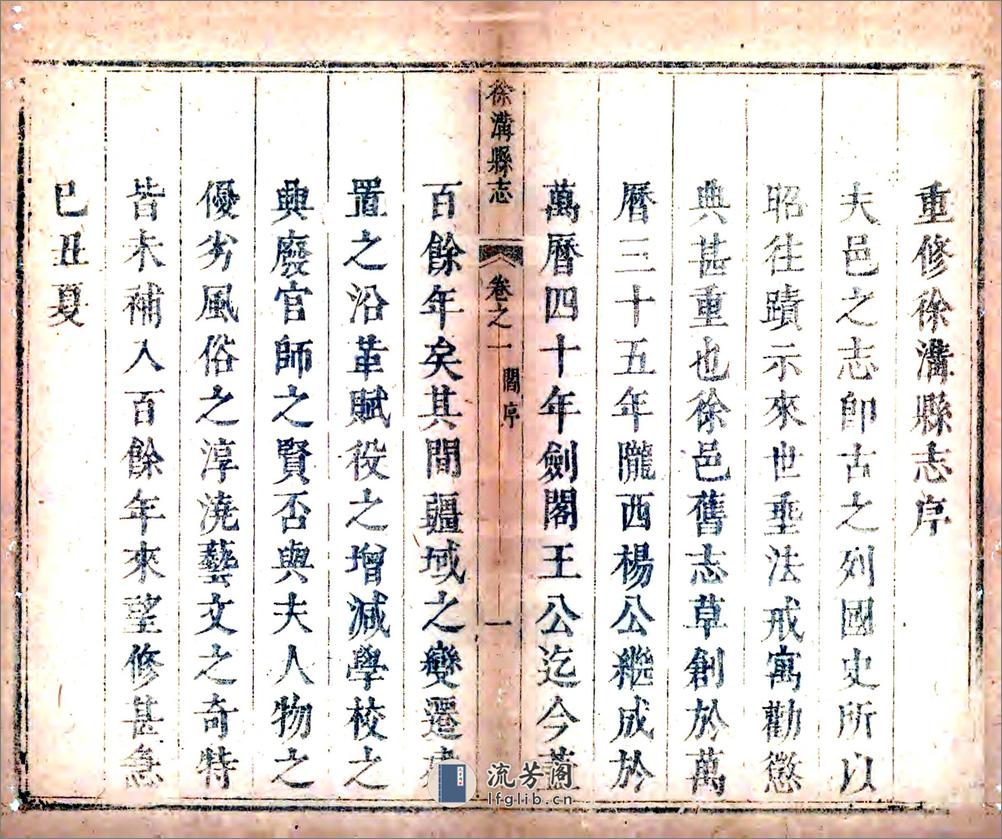 重修徐溝縣志序
夫邑之志卽古之列國史所以
昭往蹟示來世垂法戒寓勸懲
典甚重也徐邑舊志草創於萬
曆三十五年隴西楊公繼成於
萬曆四十年劍閣王公迄今蓋
徐溝縣志
卷之一
閻序
一
百餘年矣其間疆域之變遷建
置之沿革賦役之增減學校之
興廢官師之賢否與夫人物之
優劣風俗之淳澆藝文之奇特
皆未補入百餘年來望修甚急
已丑夏
流芳阁
lfglib.cn